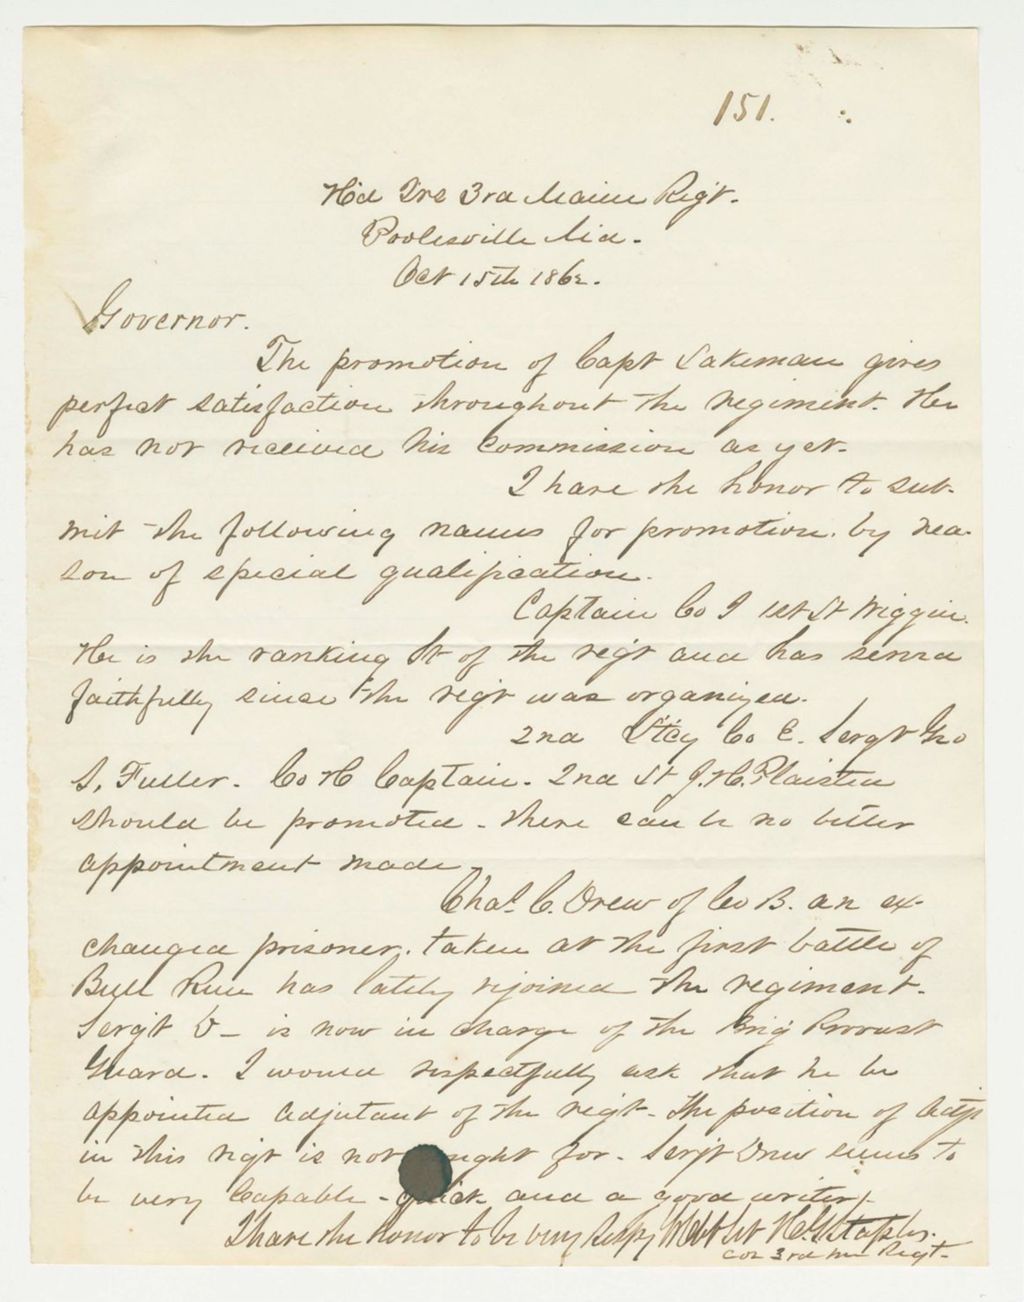 151.
H'd Qrs 3rd Maine Reg't.
Poolesville Md.
Oct 15th 1862.
Governor.
The promotion of Capt Lakeman gives
perfect satisfaction throughout the regiment. He
has not received his commission as yet.
I have the honor to sub-
mit the following names for promotion. by rea-
son of special qualification.
Captain Co I 1st Lt Wiggin.
He is the ranking Lt of the reg't and has served
faithfully since the reg't was organized.
2nd Lt Co E. Sergt Geo
S. Fuller. Co H Captain. 2nd Lt J. H. Plaisted
should be promoted - there can be no better
appointment made.
Chas. C. Drew of Co B. an ex-
changed prisoner. taken at the first battle of
Bull Run has lately rejoined the regiment.
Serg't D- is now in charge of the Brig Provost
Guard. I would respectfully ask that he be
appointed Adjutant of the regt- The position of Adjt
in this regt is not for. Serg't Drew seems to
be very capable - quick and a good writer.
I have the honor to be very Respy Obt Svt H. G. Staples.
Col 3rd Me Regt.